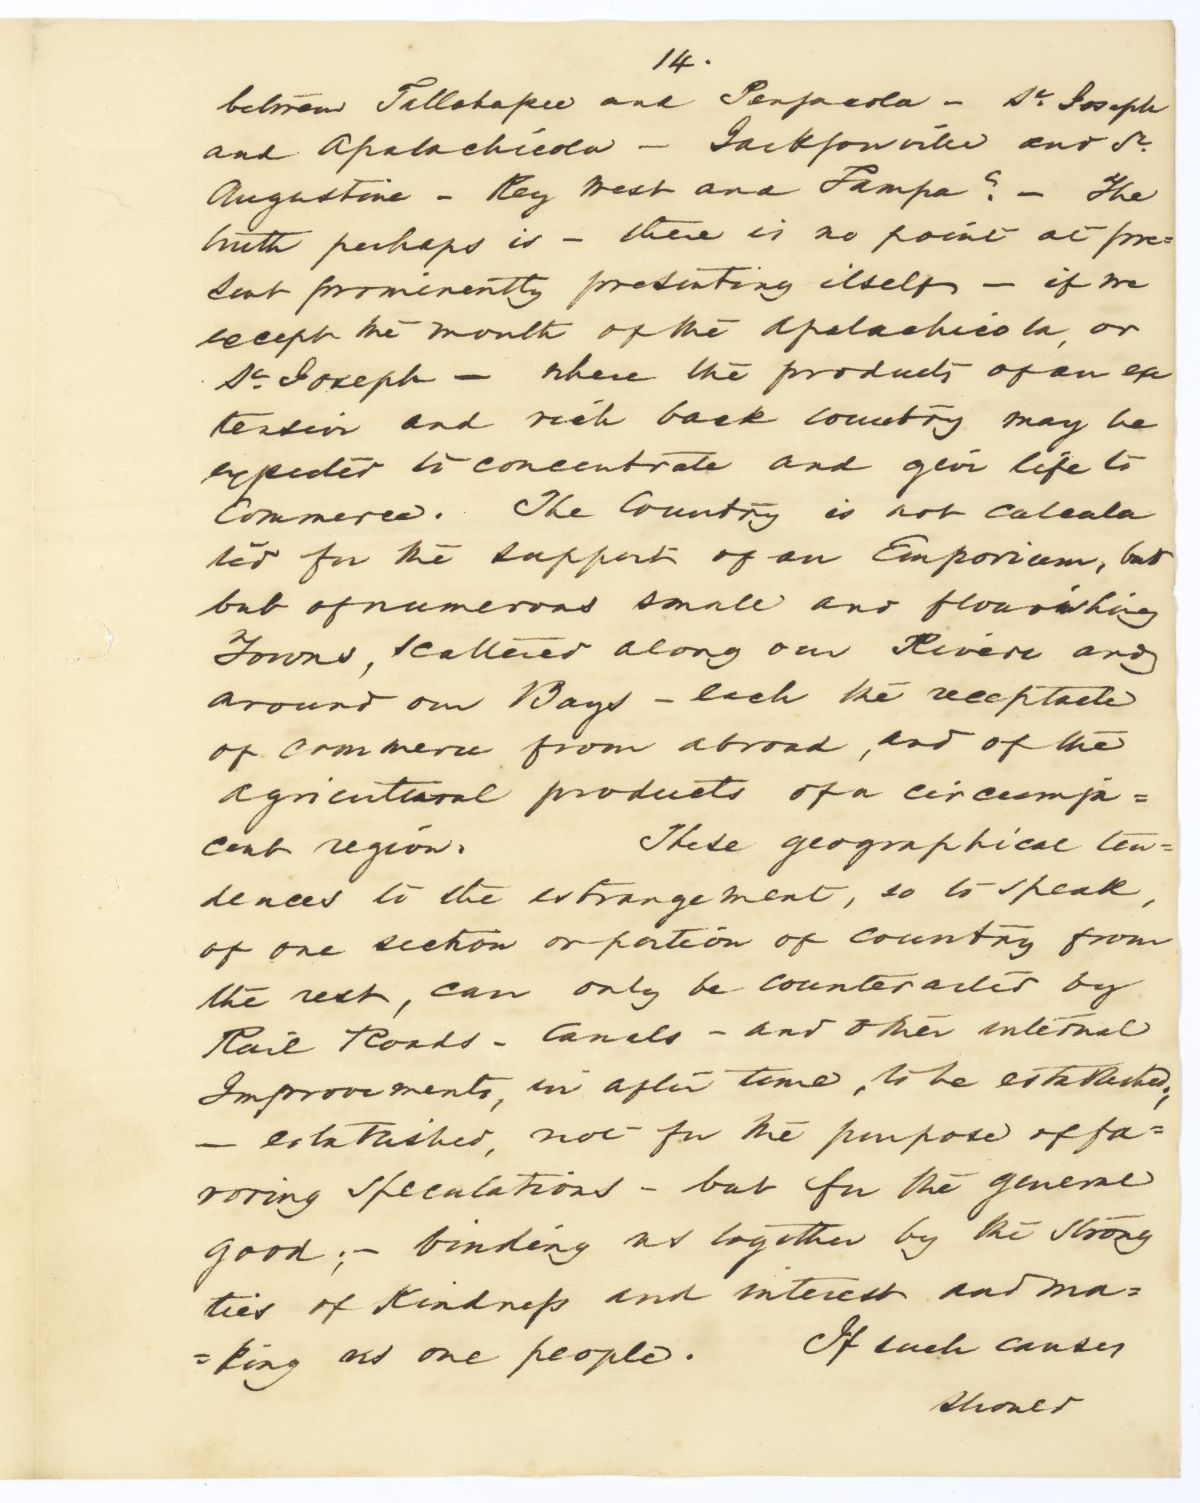 14.
between Tallahassee and Pensacola - St. Joseph
and Apalachicola - Jacksonville and St.
Augustine - Key West and Tampa? - The
truth perhaps is - there is no point at pre=
sent prominently presenting itself - if we
except the mouth of the Apalachicola, or
St. Joseph - where the products of an ex
tensive and rich back country may be
expected to concentrate and give life to
Commerce. The Country is not calcula
ted for the support of an Emporium, but
but of numerous small and flourishing
Towns, scattered along our Rivers and
around our Bays - each the receptacle
of commerce from abroad, and of the
agricultural products of a circumja=
cent region. These geographical ten=
dences to the estrangement, so to speak,
of one section or portion of country from
the rest, can only be counteracted by
Rail Roads - Canals - and other internal
Improvements, in after time, to be established;
- established, not for the purpose of fa=
voring speculations - but for the general
good; - binding us together by the strong
ties of Kindness and interest and ma=
=king us one people. If such causes
should